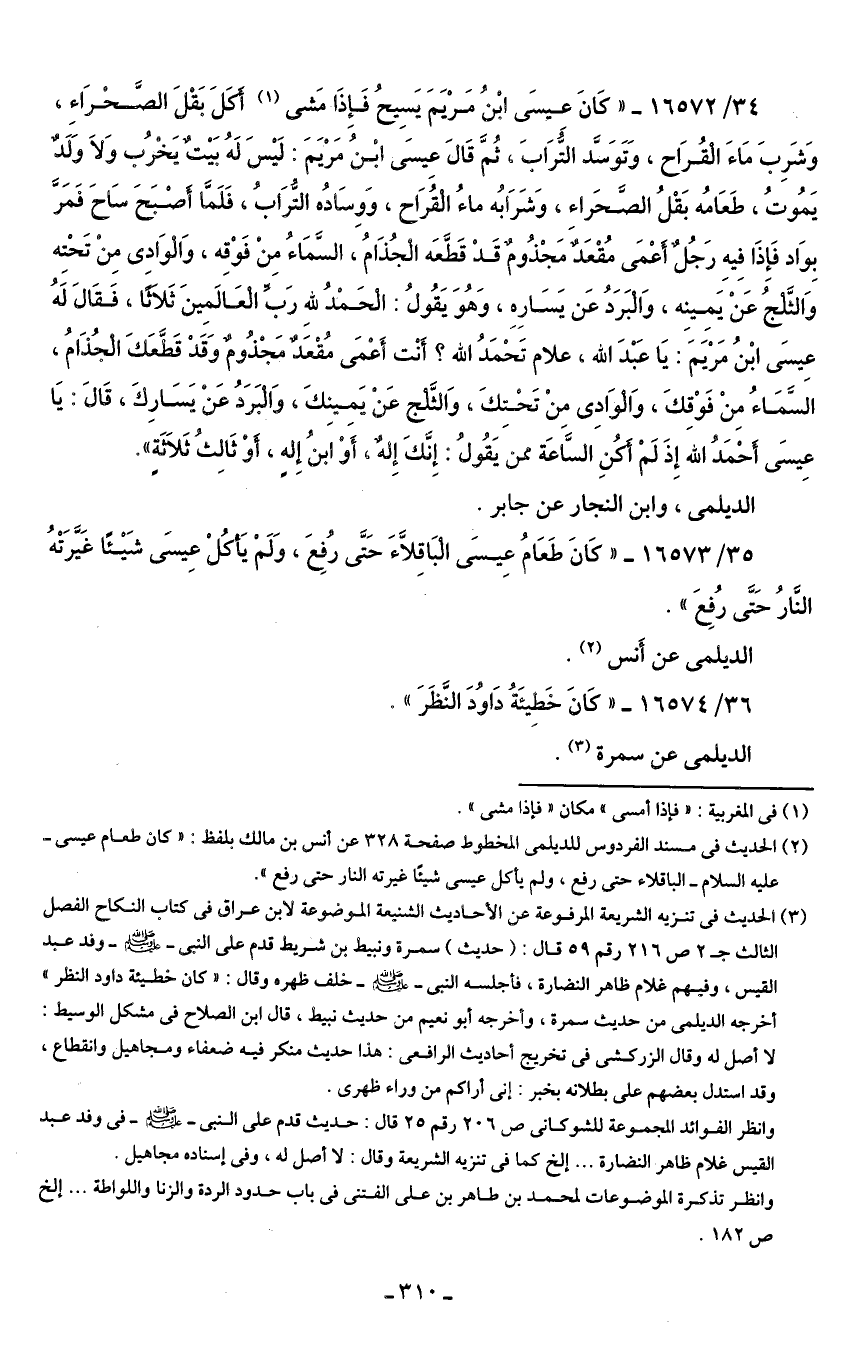 ٣٤/ ١٦٥٧٢ ـ « كَانَ عِيسَى ابْنُ مَرْيَمَ يَسِيحُ فَإِذَا مَشى (١) أَكَلَ بَقْلَ الصَّحْرَاءِ ،
وَشَرِبَ مَاءَ الْقُرَاحِ ، وَتَوَسَّد التُّرَابَ ، ثُمَّ قَالَ عِيسَى ابْنُ مَرْيَمَ : لَيْسَ لَهُ بَيْتٌ يَخْرُب وَلاَ وَلَدٌ
يَمُوتُ ، طَعَامُه بَقْلُ الصَّحَراءِ ، وَشَرَابُه ماءُ الْقُراحِ ، وَوِسَادُه التُّرَابُ ، فَلَمَّا أَصْبَحَ سَاحَ فَمَرَّ
بِوادٍ فَإِذَا فِيهِ رَجُلٌ أَعْمَى مُقْعَدٌ مَجْذُومٌ قَدْ قَطَّعَه الْجُذَامُ ، السَّمَاءُ مِنْ فَوْقِه ، وَالْوَادِى مِنْ تَحْتِه
وَالثَّلْجُ عَنْ يَمِينِه ، وَالْبَرَدُ عَن يَسَارِهِ ، وَهُوَ يَقُولُ : الْحَمْدُ لله رَبِّ الْعَالَمِينَ ثَلاَثًا ، فَقَالَ لَهُ
عِيسَى ابْنُ مَرْيَمَ : يَا عَبْدَ الله ، علام تَحْمَدُ الله ؟ أَنْت أَعْمَى مُقْعَدٌ مَجْذُومٌ وَقَدْ قَطَّعَكَ الْجُذَامُ ،
السَّمَاءُ مِنْ فَوْقِكَ ، وَالْوَادِى مِنْ تَحْتِكَ ، وَالثَّلْج عَنْ يَمِينِكَ ، وَالْبَرَدُ عَنْ يَسَارِكَ ، قَالَ : يَا
عِيسَى أَحْمَدُ الله إِذْ لَمْ أَكُنِ السَّاعَة ممن يَقُولُ : إِنَّكَ إِلهٌ ، أَوْ ابنُ إِلهٍ ، أَوْ ثَالِثُ ثَلاَثَةٍ».
الديلمى ، وابن النجار عن جابر .
٣٥/ ١٦٥٧٣ ـ « كَانَ طَعَامُ عِيسَى الْبَاقِلاَّءَ حَتَّى رُفِعَ ، وَلَمْ يَأكُلْ عِيسَى شَيْئًا غَيَّرَتْهُ
النَّارُ حَتَّى رُفِعَ » .
الديلمى عن أَنس (٢) .
٣٦/ ١٦٥٧٤ ـ « كَانَ خَطِيئَةُ دَاوُدَ النَّظَرَ » .
الديلمى عن سمرة (٣) .
(١) فى المغربية : « فإذا أمسى » مكان « فإذا مشى » .
(٢) الحديث فى مسند الفردوس للديلمى المخطوط صفحة ٣٢٨ عن أنس بن مالك بلفظ : « كان طعام عيسى ـ
عليه السلام ـ الباقلاء حتى رفع ، ولم يأكل عيسى شيئًا غيرته النار حتى رفع ».
(٣) الحديث فى تنزيه الشريعة المرفوعة عن الأحاديث الشنيعة الموضوعة لابن عراق فى كتاب النكاح الفصل
الثالث جـ ٢ ص ٢١٦ رقم ٥٩ قال : ( حديث ) سمرة ونبيط بن شريط قدم على النبى ـ ﷺ ـ وفد عبد
القيس ، وفيهم غلام ظاهر النضارة ، فأجلسه النبى ـ ﷺ ـ خلف ظهره وقال : « كان خطيئة داود النظر »
أخرجه الديلمى من حديث سمرة ، وأخرجه أبو نعيم من حديث نبيط ، قال ابن الصلاح فى مشكل الوسيط :
لا أصل له وقال الزركشى فى تخريج أحاديث الرافعى : هذا حديث منكر فيه ضعفاء ومجاهيل وانقطاع ،
وقد استدل بعضهم على بطلانه بخبر : إنى أراكم من وراء ظهرى .
وانظر الفوائد المجموعة للشوكانى ص ٢٠٦ رقم ٢٥ قال : حديث قدم على النبى ـ ﷺ ـ فى وفد عبد
القيس غلام ظاهر النضارة ... إلخ كما فى تنزيه الشريعة وقال : لا أصل له ، وفى إسناده مجاهيل .
وانظر تذكرة الموضوعات لمحمد بن طاهر بن على الفتنى فى باب حدود الردة والزنا واللواطة ... إلخ
ص ١٨٢ .
ـ ٣١٠ ـ